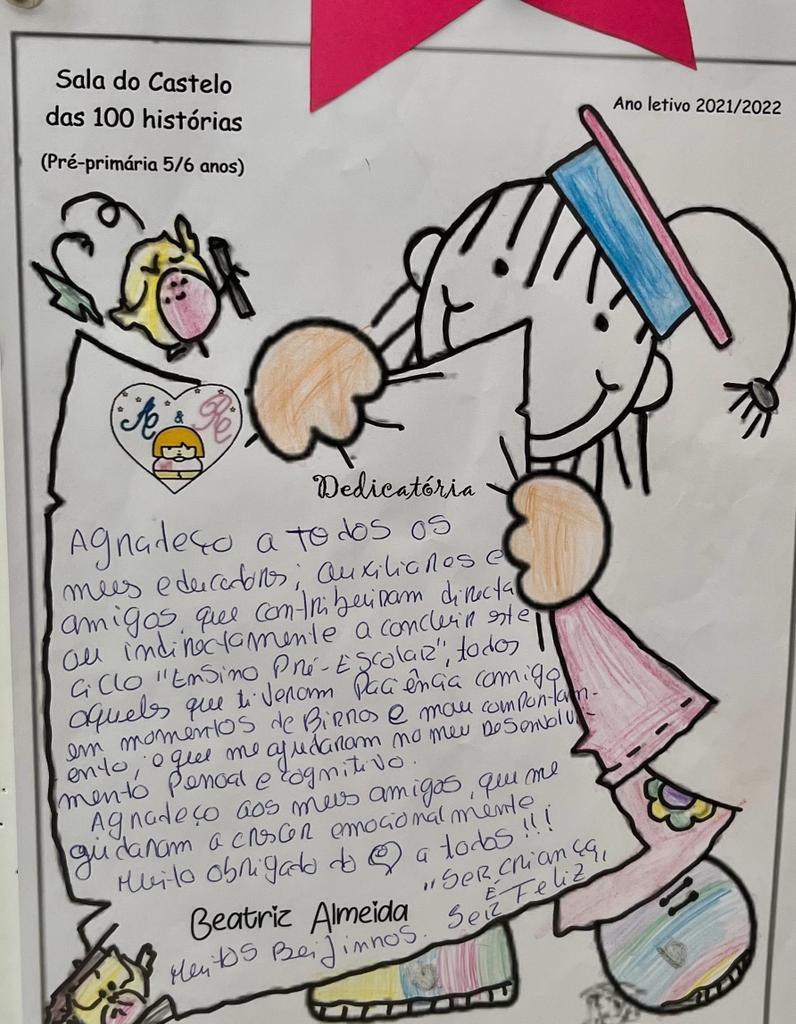 Sala do Castelo
das 100 histórias
(Pré-primária 5/6 anos)
Ano letivo 2021/2022
&
Dedicatória
Agradeço a todos os
meus educadores, auxiliares e
amigos, que contribuiram directa
ou indirectamente a concluir este
ciclo "Ensino Pré-Escolar", todos
aqueles que tiveram Paciência comigo
em momentos de Birras e mau comportam-
ento, o que me ajudaram no meu Desenvolvi-
mento Pessoal e cognitivo.
Agradeço aos meus amigos, que me
ajudaram a crescer emocionalmente
Muito obrigado do ♡ a todos!!!
"Ser criança,
É
Ser Feliz
Beatriz Almeida
Muitos Beijinnos.